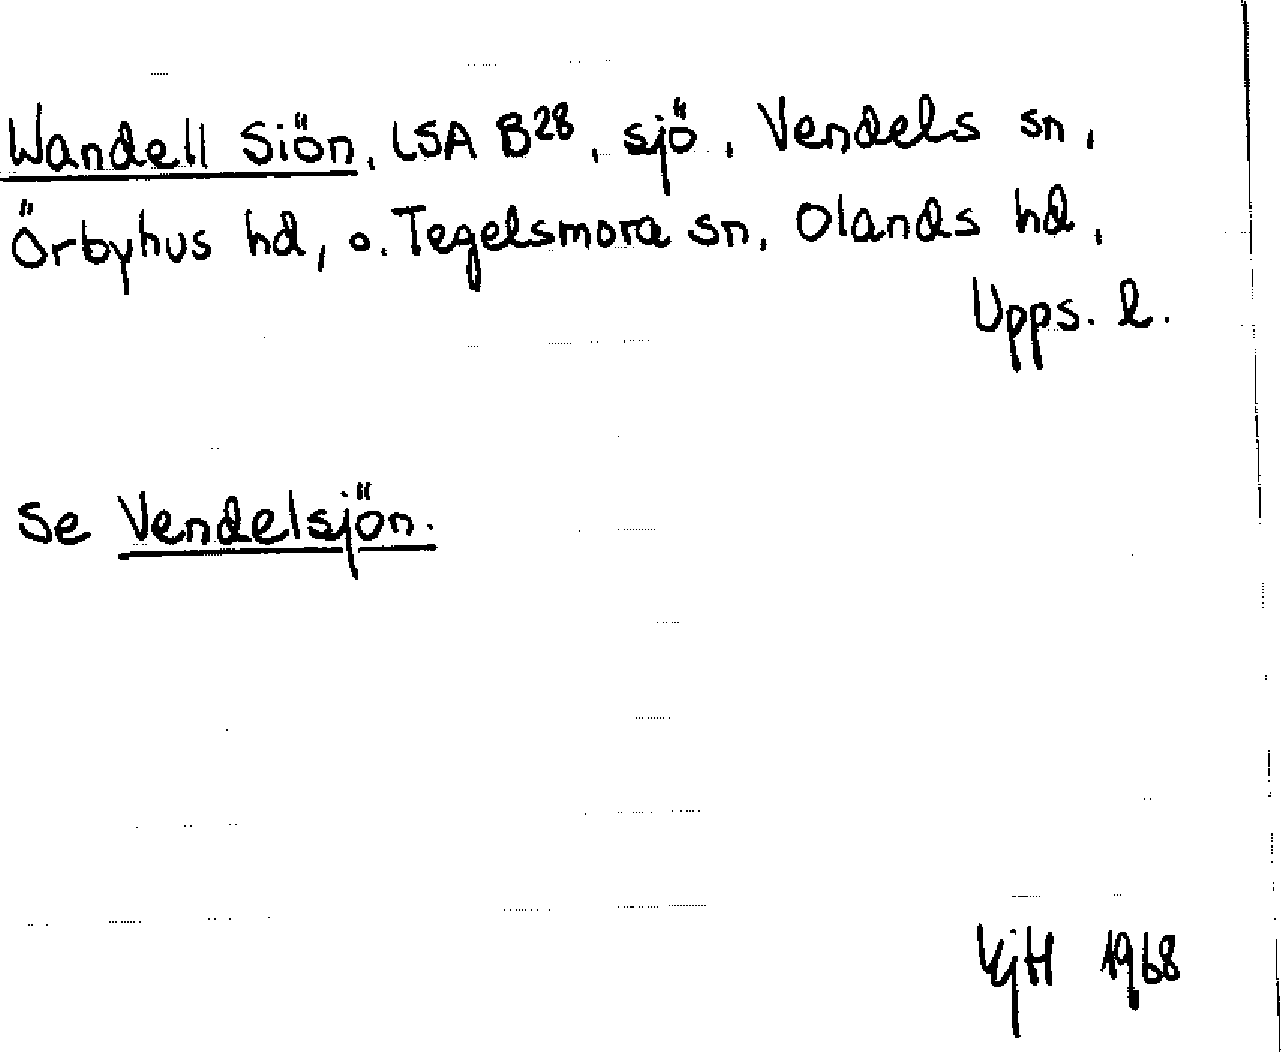 Wandell Siön, LSA B28, sjö, Vendels sn,
Örbyhus hd, o. Tegelsmora sn, Olands hd,
Upps. l.
Se Vendelsjön.
1968